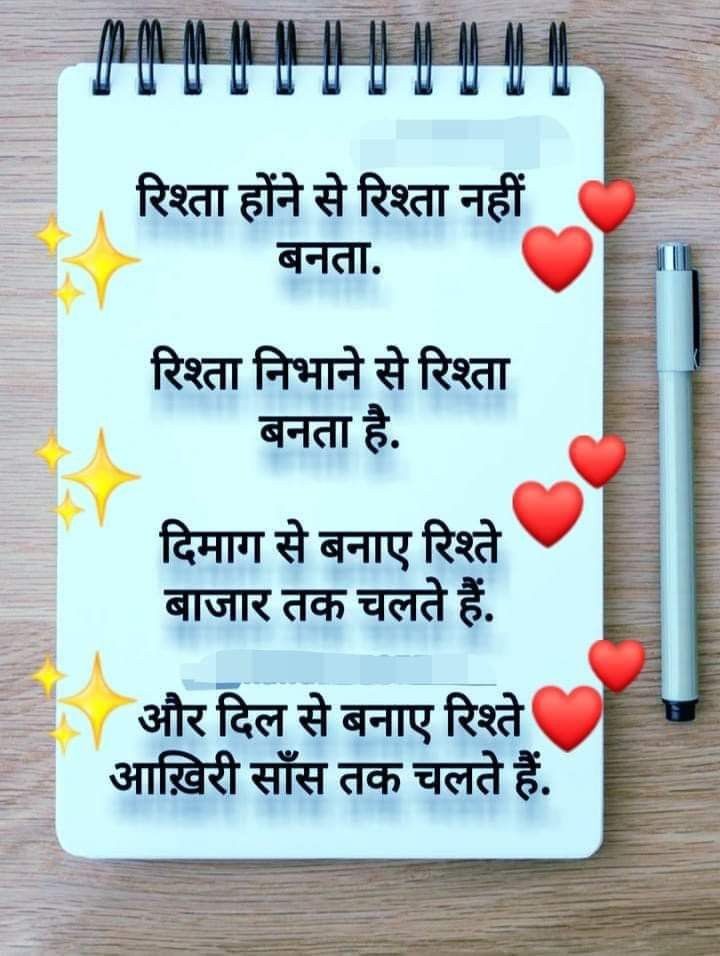 रिश्ता होंने से रिश्ता नहीं
बनता.
रिश्ता निभाने से रिश्ता
बनता है.
दिमाग से बनाए रिश्ते
बाजार तक चलते हैं.
और दिल से बनाए रिश्ते
आख़िरी साँस तक चलते हैं.